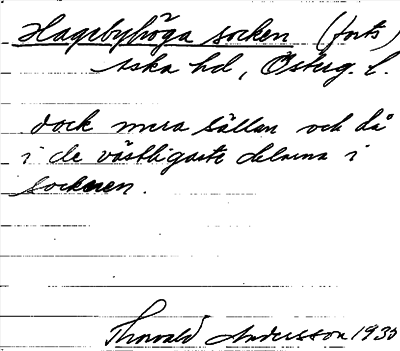 Hagebyhöga socken (forts)
Aska hd, Österg. l.
dock mera sällan och då
i de västligaste delarna i
socknen.
Thorvald Andersson 1930